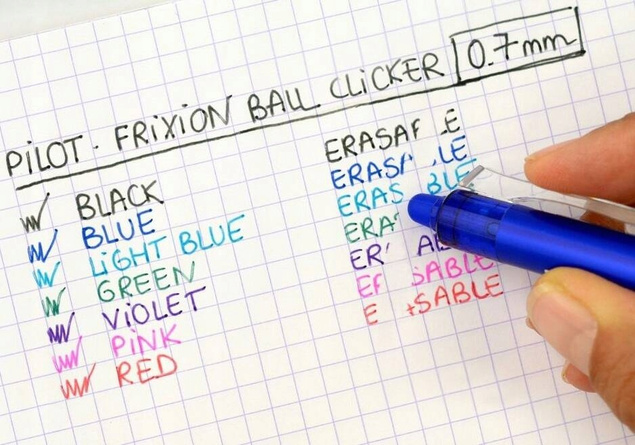 PILOT. FRIXION BALL CLICKER 0.7mm
BLACK
BLUE
LIGHT BLUE
GREEN
VIOLET
PINK
RED
ERASA E
ERAS LE
ERAS BLE
ERA
ER AB
E SABLE
E SABLE